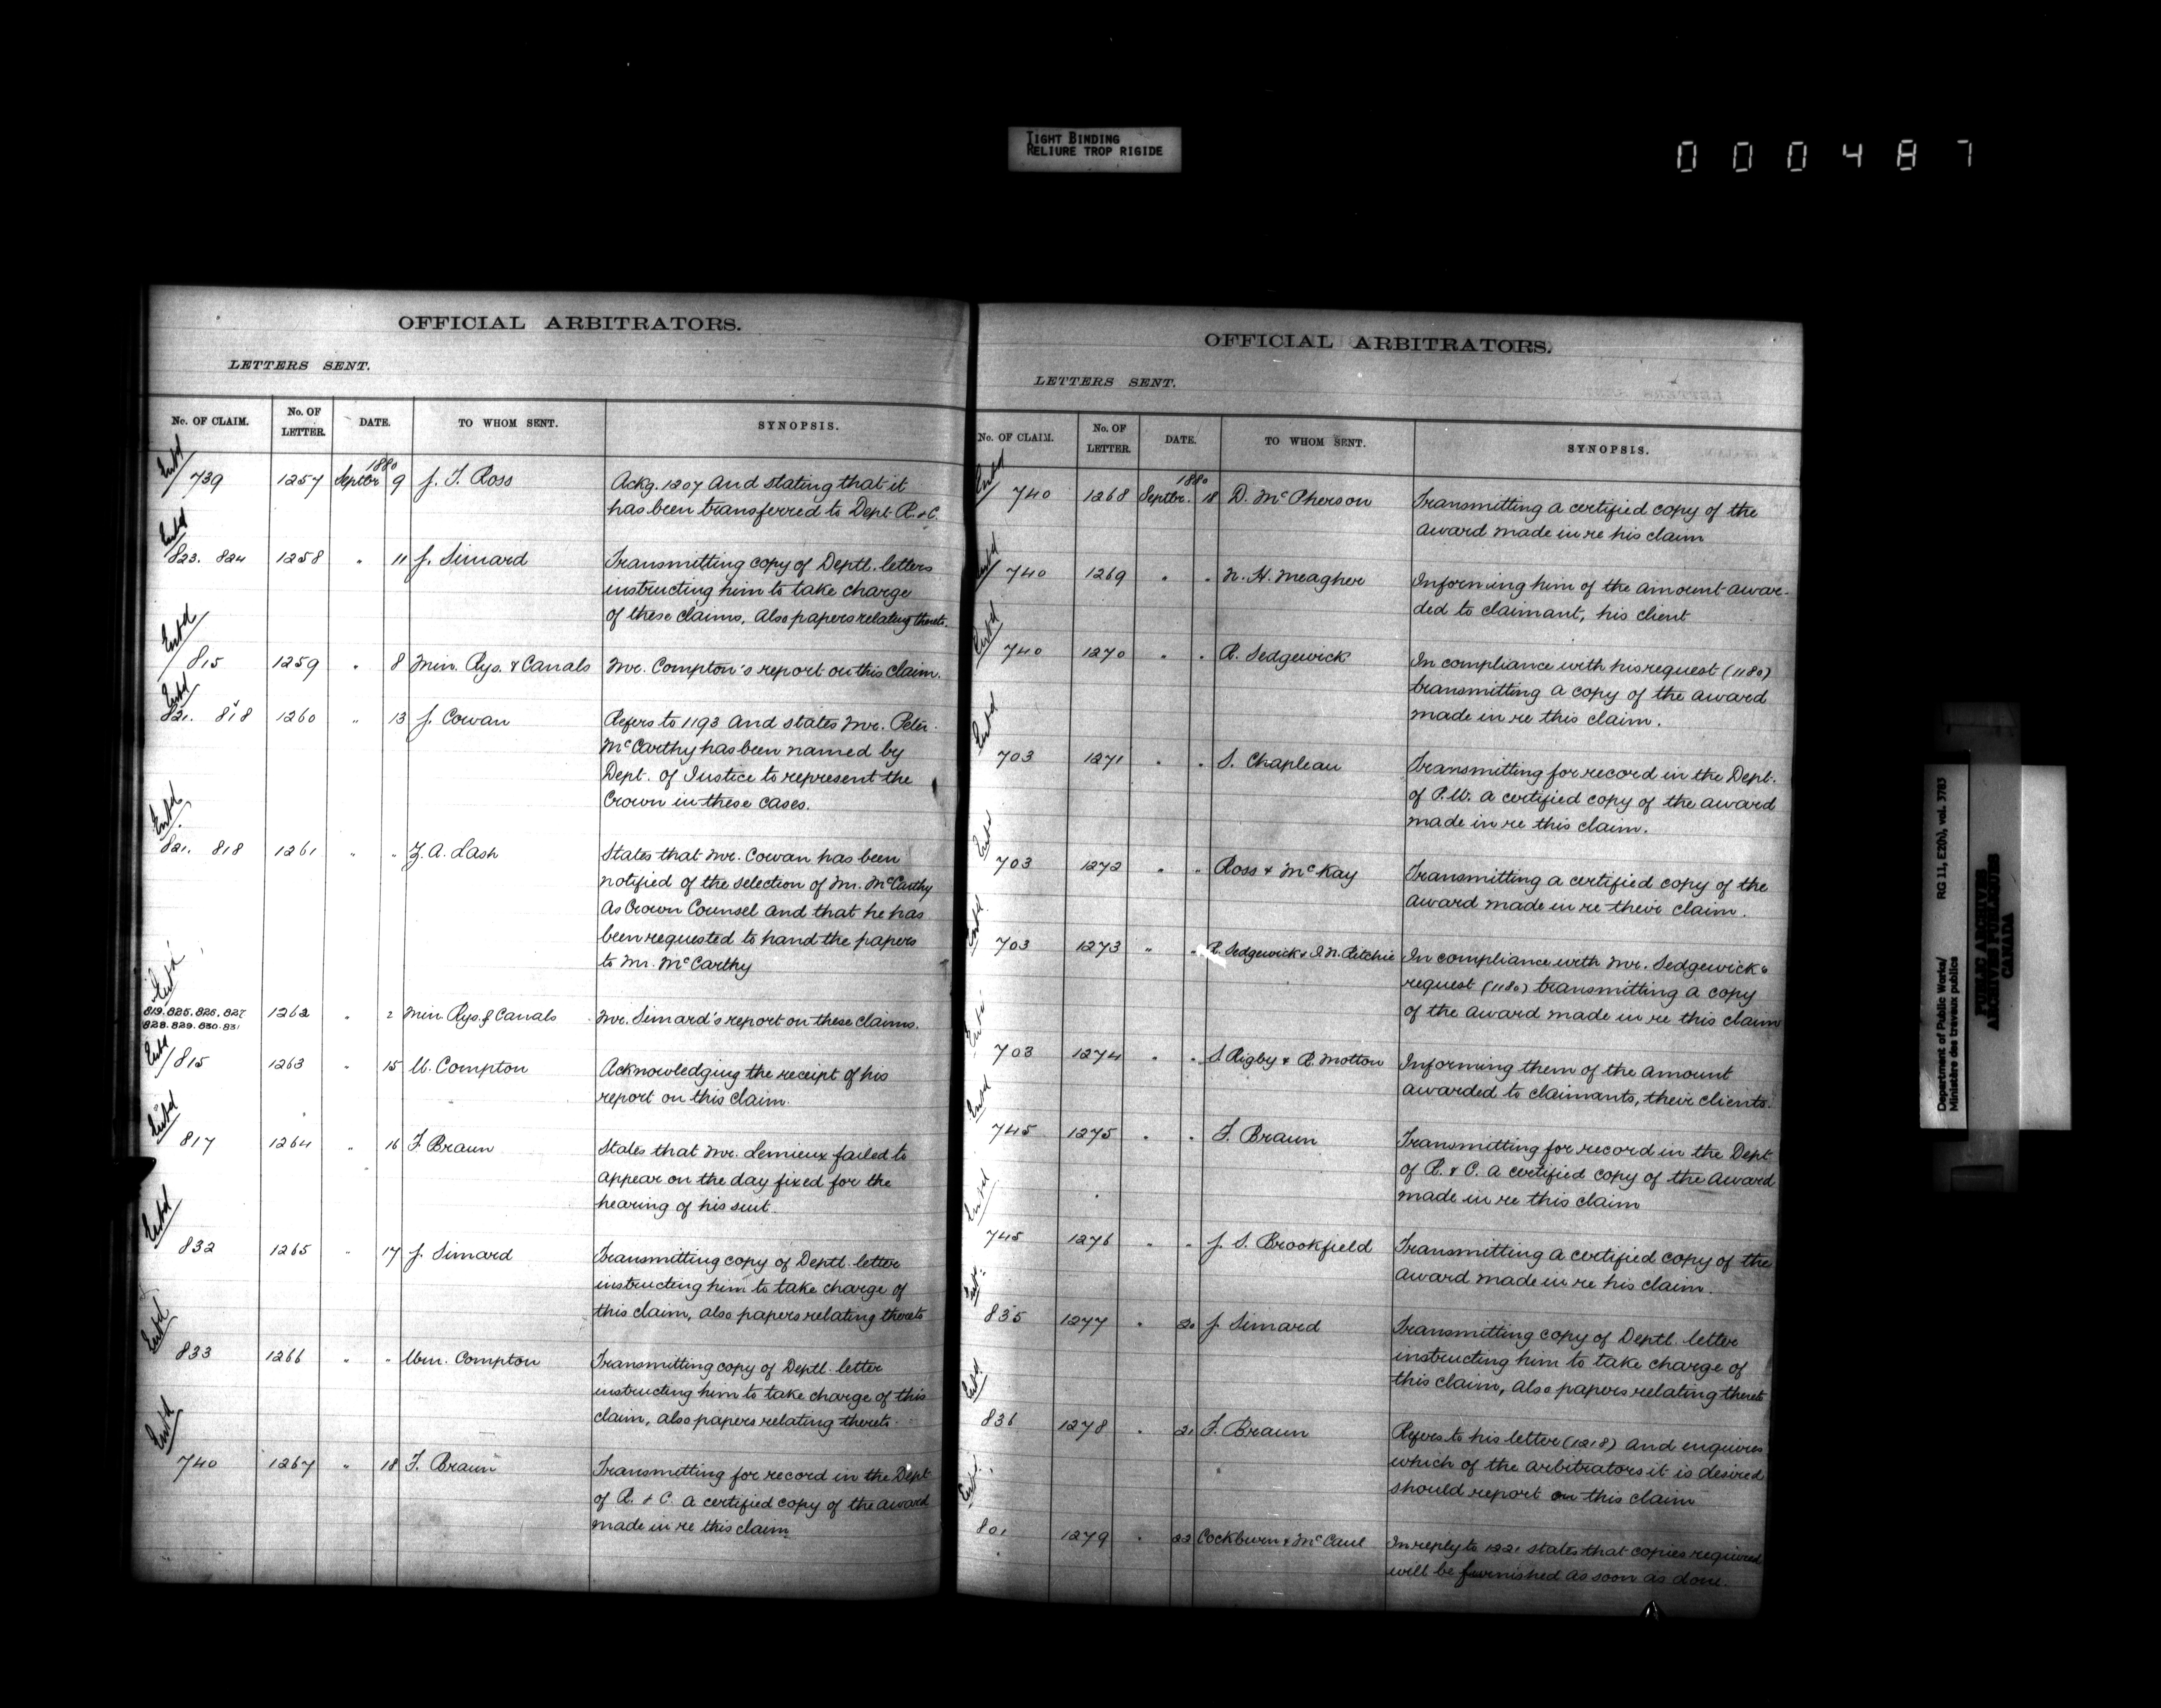 TIGHT BINDING
RELIURE TROP RIGIDE
000487
OFFICIAL ARBITRATORS.
LETTERS SENT.
No. OF CLAIM. No. OF LETTER. DATE. TO WHOM SENT. SYNOPSIS.
Entd 739 1257 Septbr 1880 9 J. T. Ross Ackg. 1207 and stating that it
has been transferred to Dept. R. & C.
Entd 823. 824 1258 " 11 J. Simard Transmitting copy of Deptl. letters
instructing him to take charge
of these claims, also papers relating thereto.
Entd 815 1259 " 8 Min. Rys. & Canals Mr. Compton's report on this claim.
Entd 821. 818 1260 " 13 J. Cowan Refers to 1193 and states Mr. Peter
McCarthy has been named by
Dept. of Justice to represent the
Crown in these cases.
Entd 821. 818 1261 " " Z. A. Lash States that Mr. Cowan has been
notified of the selection of Mr. McCarthy
as Crown Counsel and that he has
been requested to hand the papers
to Mr. McCarthy
Entd 819. 825. 826. 827
828. 829. 830. 831 1262 " 2 Min. Rys. & Canals Mr. Simard's report on these claims.
Entd 815 1263 " 15 W. Compton Acknowledging the receipt of his
report on this claim.
Entd 817 1264 " 16 F. Braun States that Mr. Lemieux failed to
appear on the day fixed for the
hearing of his suit.
Entd 832 1265 " 17 J. Simard Transmitting copy of Deptl. letter
instructing him to take charge of
this claim, also papers relating thereto
Entd 833 1266 " " Wm. Compton Transmitting copy of Deptl. letter
instructing him to take charge of this
claim, also papers relating thereto.
Entd 740 1267 " 18 F. Braun Transmitting for record in the Dept
of R. & C. a certified copy of the award
made in re this claim
OFFICIAL ARBITRATORS.
LETTERS SENT.
No. OF CLAIM. No. OF LETTER. DATE. TO WHOM SENT. SYNOPSIS.
Entd 740 1268 Septbr. 1880 18 D. McPherson Transmitting a certified copy of the
award made in re his claim
Entd 740 1269 " " N. H. Meagher Informing him of the amount awar-
ded to claimant, his client
Entd 740 1270 " " R. Sedgewick In compliance with his request (1180)
transmitting a copy of the award
made in re this claim.
Entd 703 1271 " " S. Chapleau Transmitting for record in the Dept.
of P.W. a certified copy of the award
made in re this claim.
Entd 703 1272 " " Ross & McKay Transmitting a certified copy of the
award made in re their claim.
Entd 703 1273 " " R. Sedgewick & J. N. Ritchie In compliance with Mr. Sedgewick's
request (1180) transmitting a copy
of the award made in re this claim
Entd 703 1274 " " S. Rigby & R. Motton Informing them of the amount
awarded to claimants, their clients.
Entd 745 1275 " " F. Braun Transmitting for record in the Dept
of R. & C. a certified copy of the award
made in re this claim
Entd 745 1276 " " J. S. Brookfield Transmitting a certified copy of the
award made in re his claim.
Entd 835 1277 " 20 J. Simard Transmitting copy of Deptl. letter
instructing him to take charge of
this claim, also papers relating thereto
Entd 836 1278 " 21 F. Braun Refers to his letter (1218) and enquires
which of the arbitrators it is desired
should report on this claim
Entd 801 1279 " 22 Cockburn & McCaul In reply to 1221 states that copies required
will be furnished as soon as done.
Department of Public Works/ RG 11, E20), vol. 3783
Ministère des travaux publics
PUBLIC ARCHIVES
ARCHIVES PUBLIQUES
CANADA